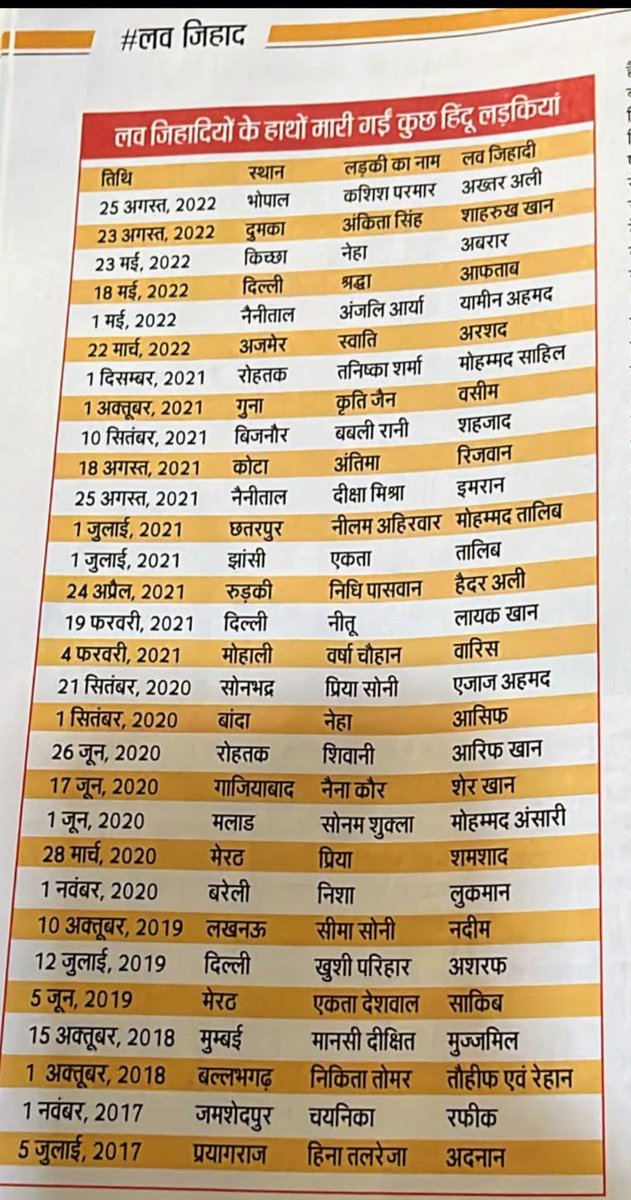 #लव जिहाद
लव जिहादियों के हाथों मारी गईं कुछ हिंदू लड़कियां
तिथि स्थान लड़की का नाम लव जिहादी
25 अगस्त, 2022 भोपाल कशिश परमार अख्तर अली
23 अगस्त, 2022 दुमका अंकिता सिंह शाहरुख खान
23 मई, 2022 किच्छा नेहा अबरार
18 मई, 2022 दिल्ली श्रद्धा आफताब
1 मई, 2022 नैनीताल अंजलि आर्या यामीन अहमद
22 मार्च, 2022 अजमेर स्वाति अरशद
1 दिसम्बर, 2021 रोहतक तनिष्का शर्मा मोहम्मद साहिल
1 अक्तूबर, 2021 गुना कृति जैन वसीम
10 सितंबर, 2021 बिजनौर बबली रानी शहजाद
18 अगस्त, 2021 कोटा अंतिमा रिजवान
25 अगस्त, 2021 नैनीताल दीक्षा मिश्रा इमरान
1 जुलाई, 2021 छतरपुर नीलम अहिरवार मोहम्मद तालिब
1 जुलाई, 2021 झांसी एकता तालिब
24 अप्रैल, 2021 रुड़की निधि पासवान हैदर अली
19 फरवरी, 2021 दिल्ली नीतू लायक खान
4 फरवरी, 2021 मोहाली वर्षा चौहान वारिस
21 सितंबर, 2020 सोनभद्र प्रिया सोनी एजाज अहमद
1 सितंबर, 2020 बांदा नेहा आसिफ
26 जून, 2020 रोहतक शिवानी आरिफ खान
17 जून, 2020 गाजियाबाद नैना कौर शेर खान
1 जून, 2020 मलाड सोनम शुक्ला मोहम्मद अंसारी
28 मार्च, 2020 मेरठ प्रिया शमशाद
1 नवंबर, 2020 बरेली निशा लुकमान
10 अक्तूबर, 2019 लखनऊ सीमा सोनी नदीम
12 जुलाई, 2019 दिल्ली खुशी परिहार अशरफ
5 जून, 2019 मेरठ एकता देशवाल साकिब
15 अक्तूबर, 2018 मुम्बई मानसी दीक्षित मुज्जमिल
1 अक्तूबर, 2018 बल्लभगढ़ निकिता तोमर तौहीफ एवं रेहान
1 नवंबर, 2017 जमशेदपुर चयनिका रफीक
5 जुलाई, 2017 प्रयागराज हिना तलरेजा अदनान